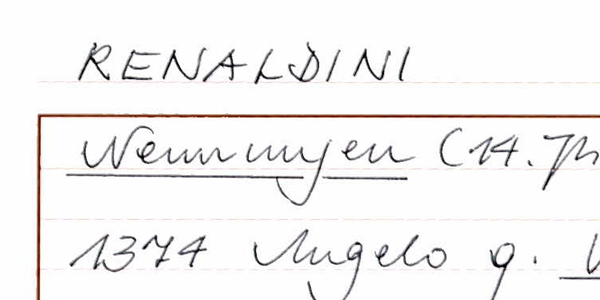 RENALDINI
Nennungen (14. Jh
1374 Angelo q.